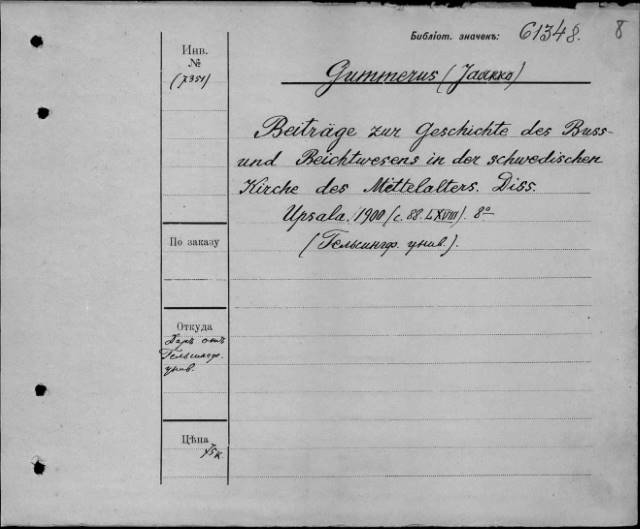 Библіот. значекъ: 61348. 8
Инв.
№
(7351)
Gummerus (Jaakko)
Beiträge zur Geschichte des Buss-
und Beichtwesens in der schwedischen
Kirche des Mittelalters. Diss.
Upsala. 1900 (c. 88. LXVIII). 8º
(Гельсингф. унив.).
По заказу
Откуда
Даръ отъ
Гельсингф.
унив.
Цѣна